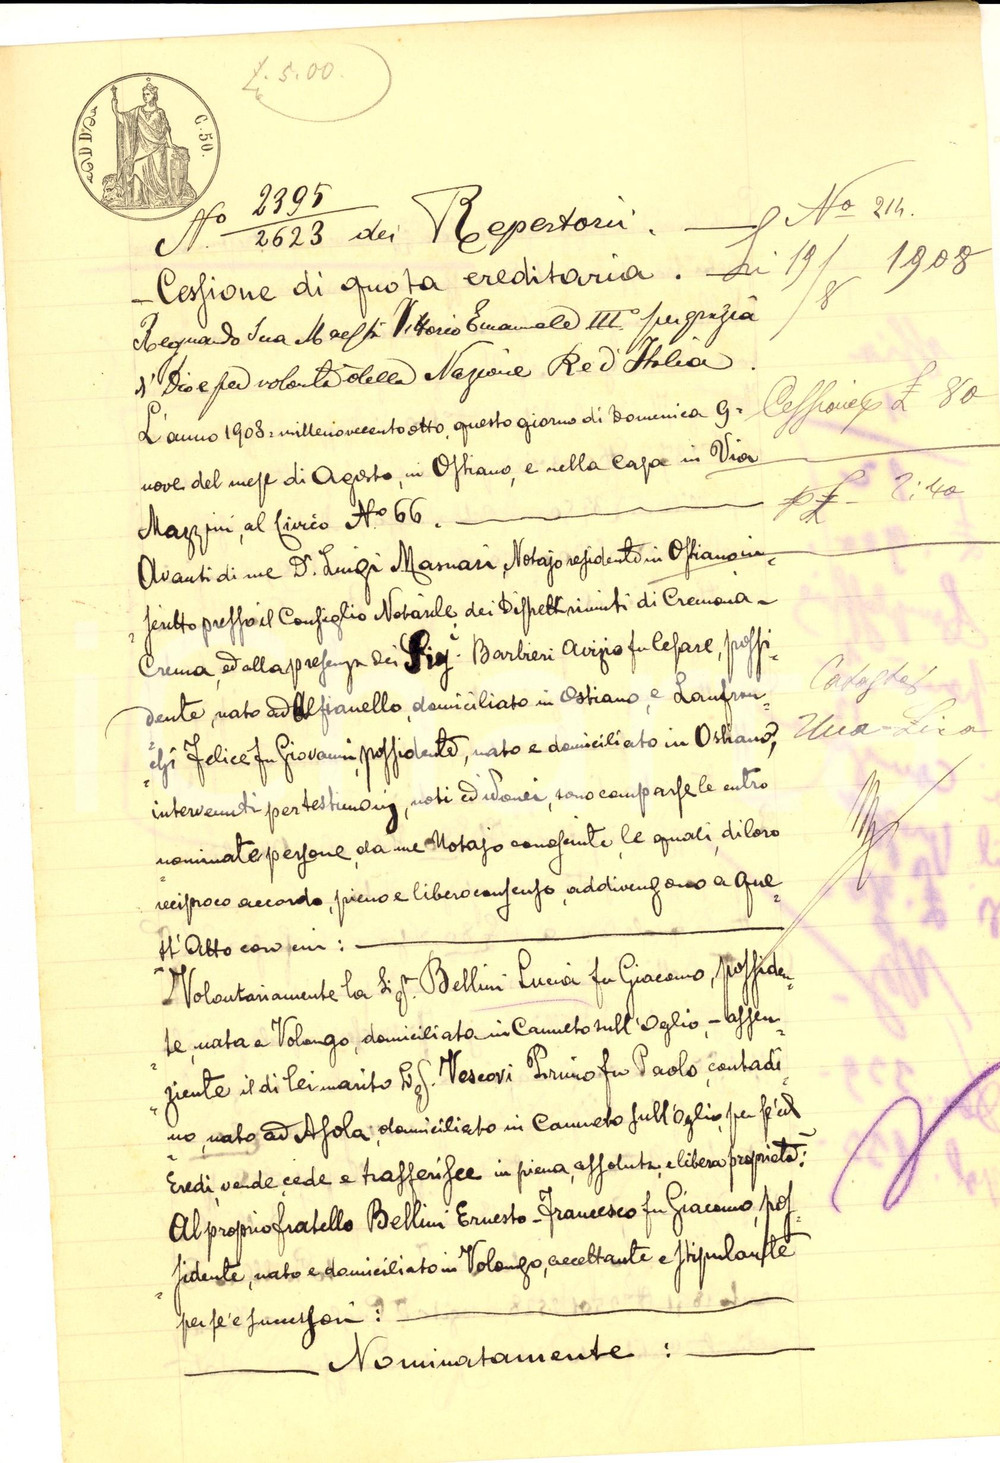 £. 5.00.
C. 50.
N.o 2395 / 2623 dei Repertorii. — N.o 214.
- Cessione di quota ereditaria. — Li 19/8 1908
Regnando Sua Maestà Vittorio Emanuele III.o per grazia
d' Dio e per volontà della Nazione Re d'Italia.
L'anno 1908 = millenovecentootto, questo giorno di Domenica 9 =
Cessione £ 80
nove del mese di Agosto, in Ostiano, e nella casa in Via
2:40
Mazzini, al Civico N.o 66.
Avanti di me D.r Luigi Masnari, Notajo residente in Ostiano in-
scritto presso il Consiglio Notarile dei Distretti riuniti di Cremona -
Crema, ed alla presenza dei Sig.i Barbieri Avizio fu Cesare, possi-
dente, nato ad Alfianello, domiciliato in Ostiano, e Lanfran-
Catastes
chi Felice fu Giovanni, possidente, nato e domiciliato in Ostiano,
Una Lira
intervenuti per testimonj, noti ed idonei, sono comparse le entro
nominate persone, da me Notajo conosciute, le quali, di loro
reciproco accordo, pieno e libero consenso, addivengono a que-
st'Atto con cui:
Volontariamente la Sig.ra Bellini Lucia fu Giacomo, possiden-
te, nata a Volongo, domiciliata in Canneto sull'Oglio, - assen-
ziente il di lei marito Sig.r Vescovi Primo fu Paolo, contadi-
no, nato ad Asola, domiciliato in Canneto sull'Oglio, per sé ed
Eredi, vende, cede e trasferisce in piena, assoluta, e libera proprietà:
Al proprio fratello Bellini Ernesto-Francesco fu Giacomo, pos-
sidente, nato e domiciliato in Volongo, accettante e stipulante
per sé e successori:
Nominatamente: